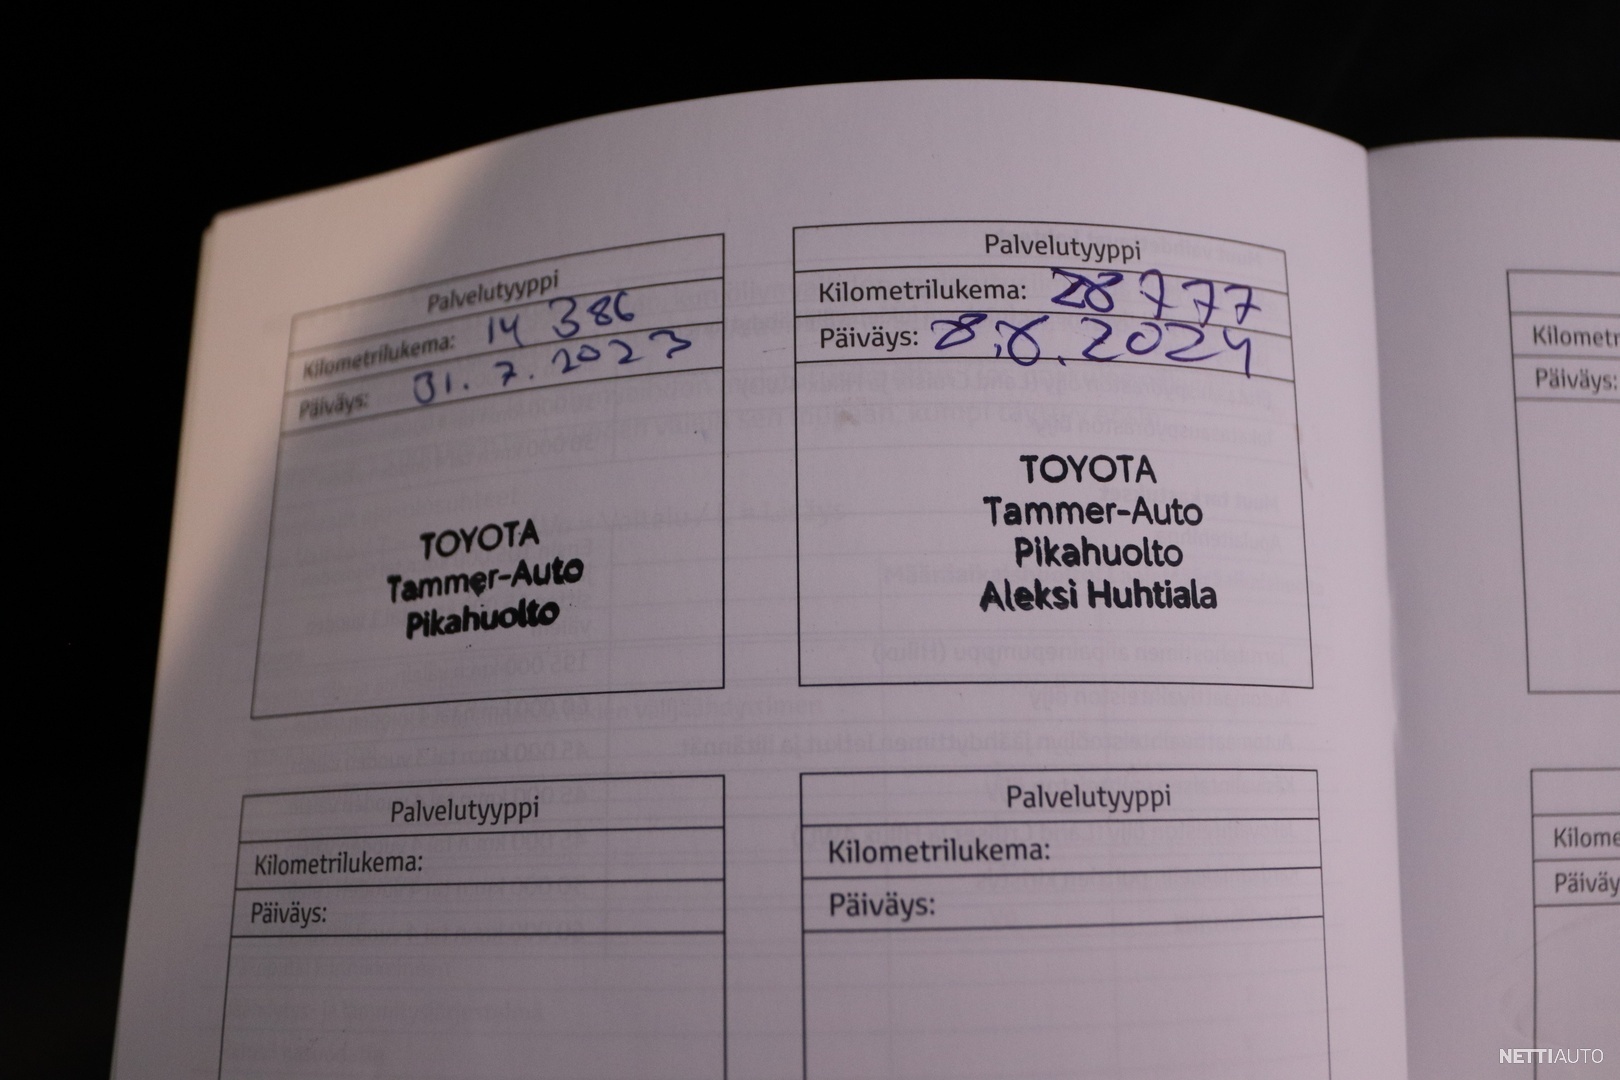 Palvelutyyppi
Kilometrilukema: 14 386
Päiväys: 31.7.2023
TOYOTA
Tammer-Auto
Pikahuolto
Palvelutyyppi
Kilometrilukema: 28 777
Päiväys: 8.6.2024
TOYOTA
Tammer-Auto
Pikahuolto
Aleksi Huhtiala
Palvelutyyppi
Kilometrilukema:
Päiväys:
Palvelutyyppi
Kilometrilukema:
Päiväys:
Kilometr
Päiväys:
Kilome
Päiväy
NETTIAUTO